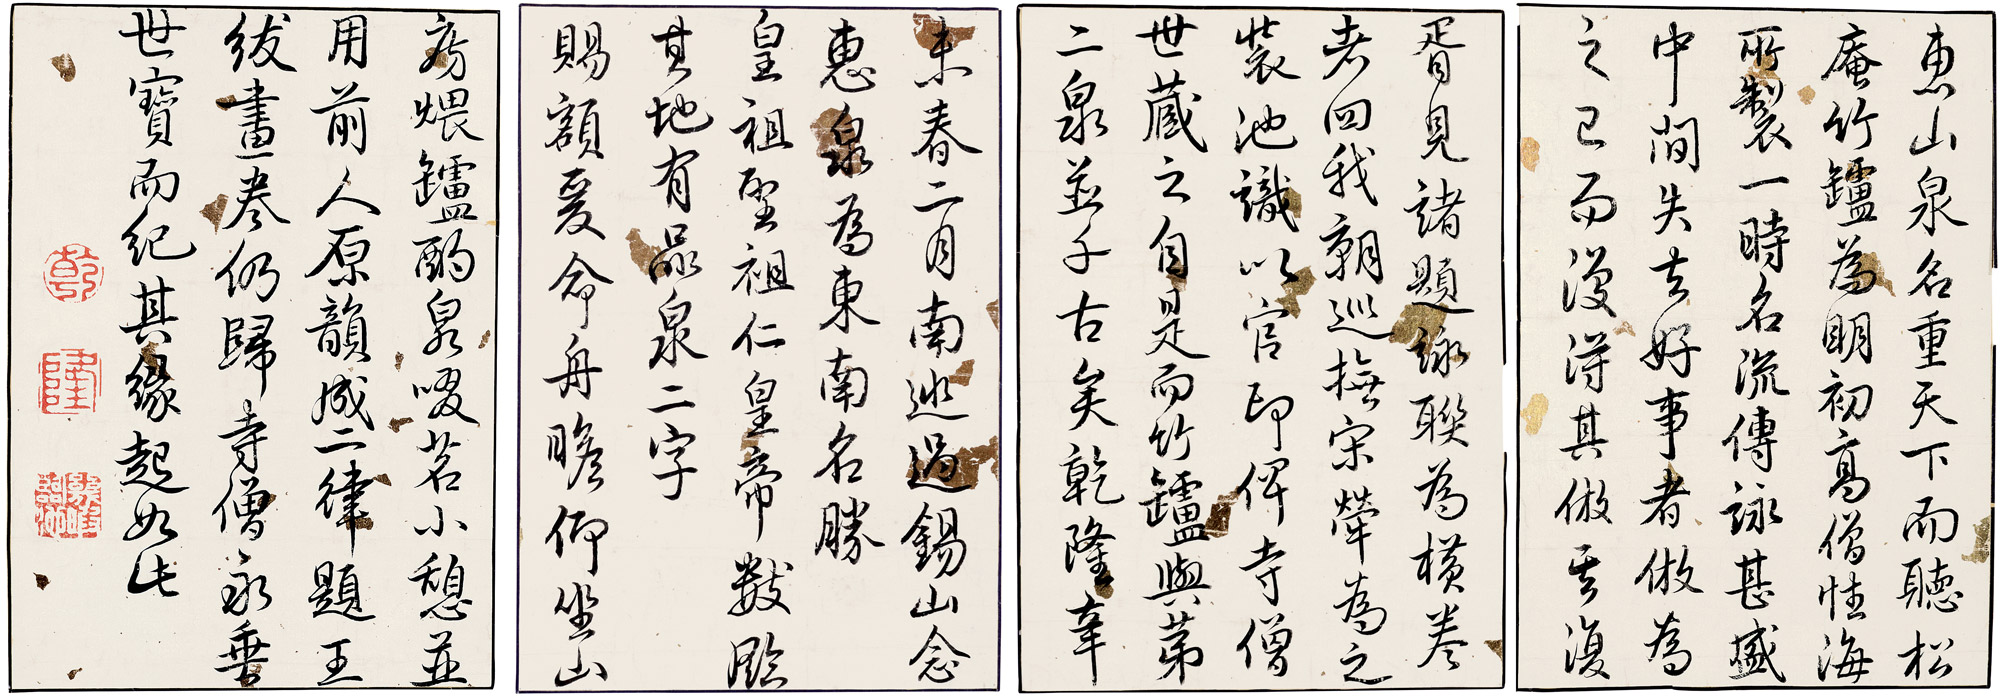 惠山泉名重天下而聽松
庵竹罏為明初高僧性海
所製一時名流傳詠甚盛
中間失去好事者倣為
之已而復得其倣復
胥見諸題詠聯為横卷
者四我朝巡撫宋犖為之
裝池識以官印俾寺僧
世藏之自是而竹罏與第
二泉並千古矣乾隆辛
未春二月南巡過錫山念
惠泉為東南名勝
皇祖聖祖仁皇帝數臨
其地有品泉二字
賜額爰命舟瞻仰坐山
房煨罏酌泉啜茗小憩並
用前人原韻成二律題王
紱畫卷仍歸寺僧永垂
世寶而紀其緣起如此
乾
隆